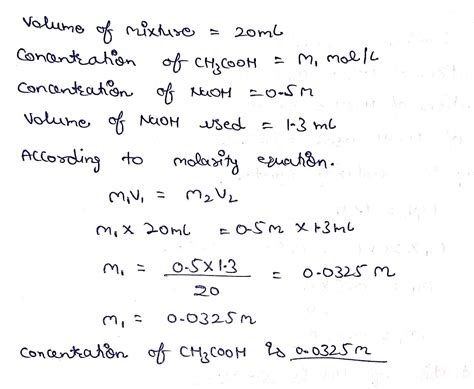 Volume of mixture = 20mL
Concentration of CH3COOH = M1 mol/L
Concentration of NaOH = 0.5M
Volume of NaOH used = 1.3 mL
According to molarity equation.
M1V1 = M2V2
M1 × 20mL = 0.5M × 1.3mL
M1 = 0.5×1.3 / 20 = 0.0325 M
M1 = 0.0325M
concentration of CH3COOH is 0.0325M